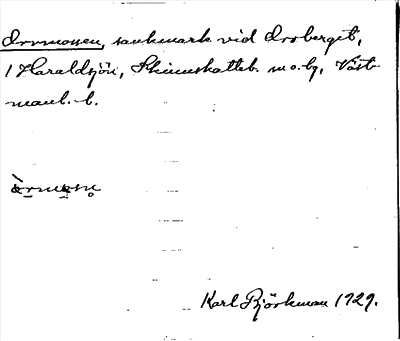 Orrmossen, sankmark vid Orrberget,
1 Haraldsjön, Skinnskatteb. sn o. bg, Väst-
manl. l.
òrmo̥sn̥
Karl Björkman 1929.